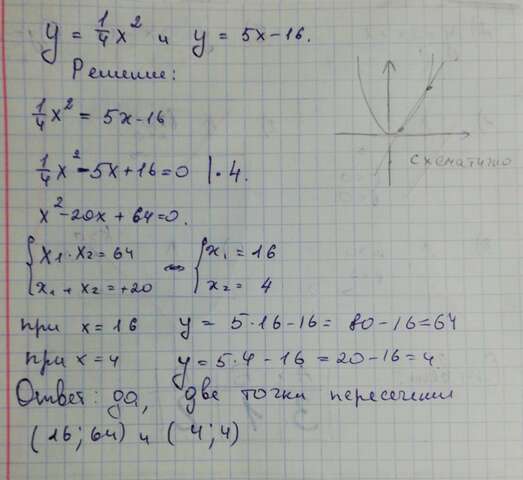 y = 1/4 x² и y = 5x - 16.
Решение:
1/4 x² = 5x - 16
1/4 x² - 5x + 16 = 0 | · 4.
x² - 20x + 64 = 0.
{ x₁ · x₂ = 64 ⇔ { x₁ = 16
x₁ + x₂ = +20 x₂ = 4
при x = 16 y = 5·16 - 16 = 80 - 16 = 64
при x = 4 y = 5·4 - 16 = 20 - 16 = 4
Ответ: да, две точки пересечения
(16; 64) и (4; 4)
схематично